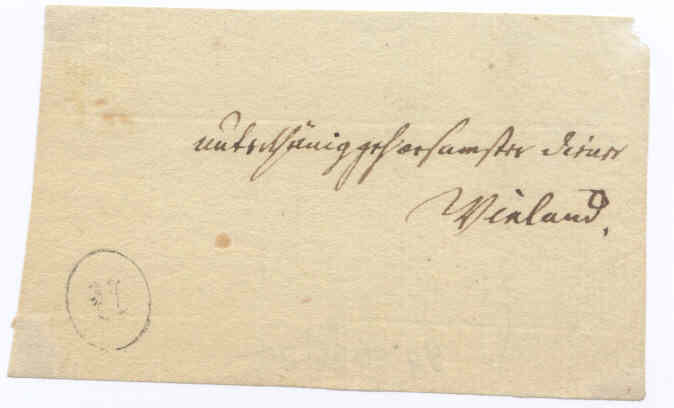 unterthänig gehorsamster diener
Wieland.